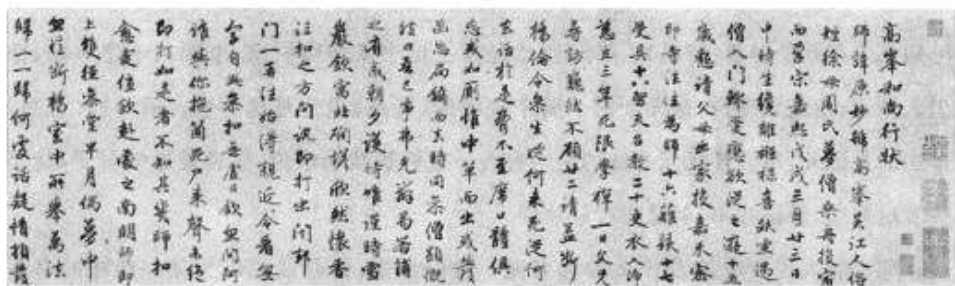 高峯和尚行狀
師諱原妙號高峯吳江人俗
姓徐母周氏夢僧乘舟投宿
而孕宋嘉熙戊戌三月廿三日
申時生纔離襁褓喜趺坐遇
僧入門輒愛戀欲從之遊十五
歲懇請父母出家投嘉禾密
印寺法住為師十六薙髮十七
受具十八習天台教二十更衣入淨
慈立三年死限學禪一日父兄
尋訪巍然不顧廿二請益斷
橋倫令參生從何來死從何
去話於是脅不至席口體俱
忘或如廁惟中單而出或發
函忘扃鐍而去時同參僧顯慨
然曰吾己事弗克辦曷若輔
之有成朝夕護持惟謹時雪
巖欽寓北磵塔欣然懷香
往扣之方問訊即打出閉却
門一再往始得親近令看無
字自此參扣無虛日欽忽問阿
誰與你拖箇死屍來聲未絕
即打如是者不知其幾師扣
愈虔值欽赴處之南明師即
上雙徑參堂半月偶夢中
忽憶斷橋室中所舉萬法
歸一一歸何處話疑情頓發